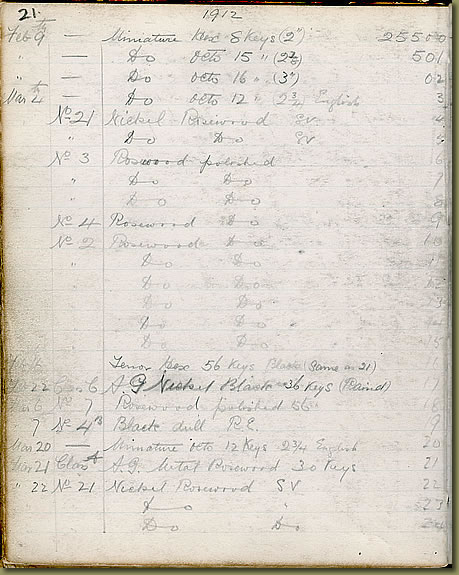 21. 1912
Feb 9th — Miniature Hex 8 Keys (2") 25500
" — Do Octo 15 " (2 3/4) 501
" — Do Octo 16 " (3") 02
Mar 4th — Do Octo 12 " 2 3/4 English 3
No 21 Nickel Rosewood SV 4
" Do Do SV 5
No 3 Rosewood polished 6
" Do Do 7
Do Do 8
No 4 Rosewood Do 9
No 2 Rosewood Do 10
" Do Do
Do Do 12
Do Do 13
Do Do
Do Do 15
Tenor Hex 56 Keys Black (Same as 21)
22 6 A G Nickel Black 36 Keys
No 7 Rosewood polished 56 18
7 No 4 Black dull R.E. 9
Mar 20 — Miniature Octo 12 Keys 2 3/4 English 20
Mar 21 Class A A.G. Metal Rosewood 30 Keys 21
" 22 No 21 Nickel Rosewood SV 22
Do " 523
Do Do 24